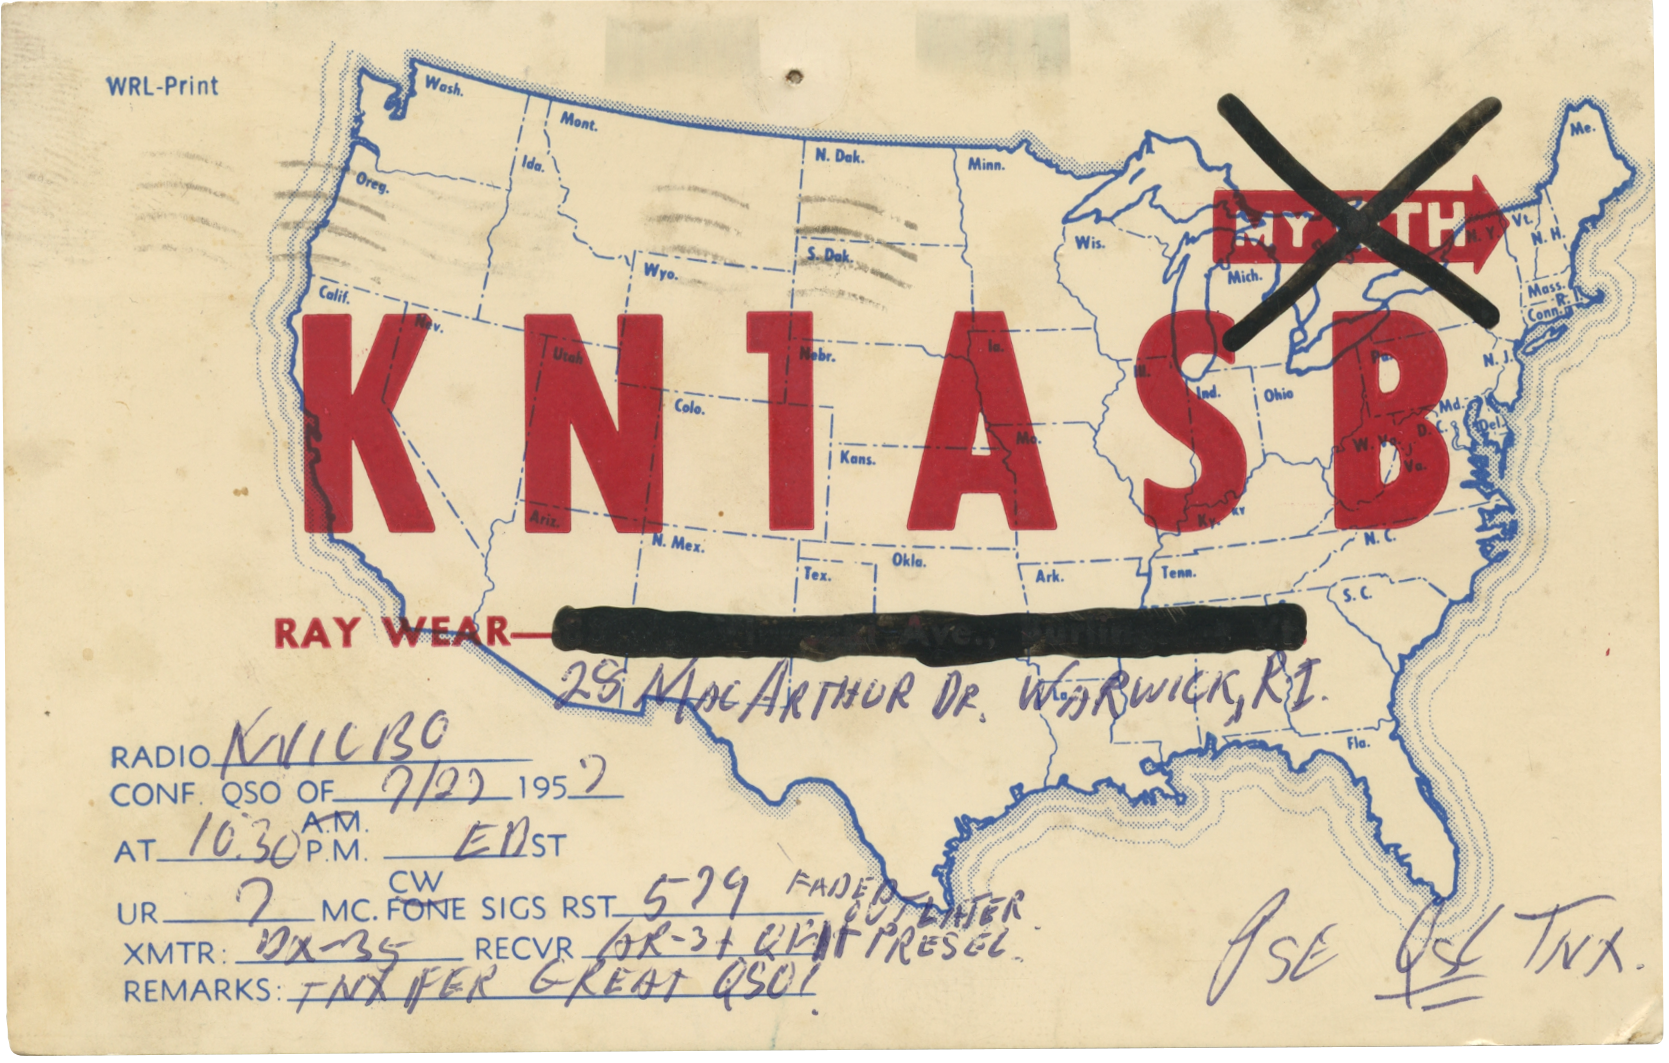 WRL-Print
Wash.
Mont.
N. Dak.
Minn.
Me.
Ida.
Oreg.
S. Dak.
Wis.
MY TH
N. Y.
Vt.
N. H.
Wyo.
Mich.
Mass.
R. I.
Conn.
Calif.
Nev.
Utah
Nebr.
Ia.
Ill.
Ind.
Ohio
Pa.
N. J.
KN1ASB
Colo.
Kans.
Mo.
W. Va.
Md.
D. C.
Del.
Va.
Ky.
KY
Ariz.
N. Mex.
Tex.
Okla.
Ark.
Tenn.
N. C.
S. C.
RAY WEAR— Ave.,
28 MACARTHUR DR. WARWICK, R.I.
La.
Fla.
RADIO KN1CBO
CONF. QSO OF 7/27 1957
AT 10:30 A.M. P.M. EDST
UR 7 MC. CW FONE SIGS RST 579 FADED OUT LATER
XMTR: DX-35 RECVR AR-3 + PRESEL.
REMARKS: TNX FER GREAT QSO!
PSE QSL TNX.